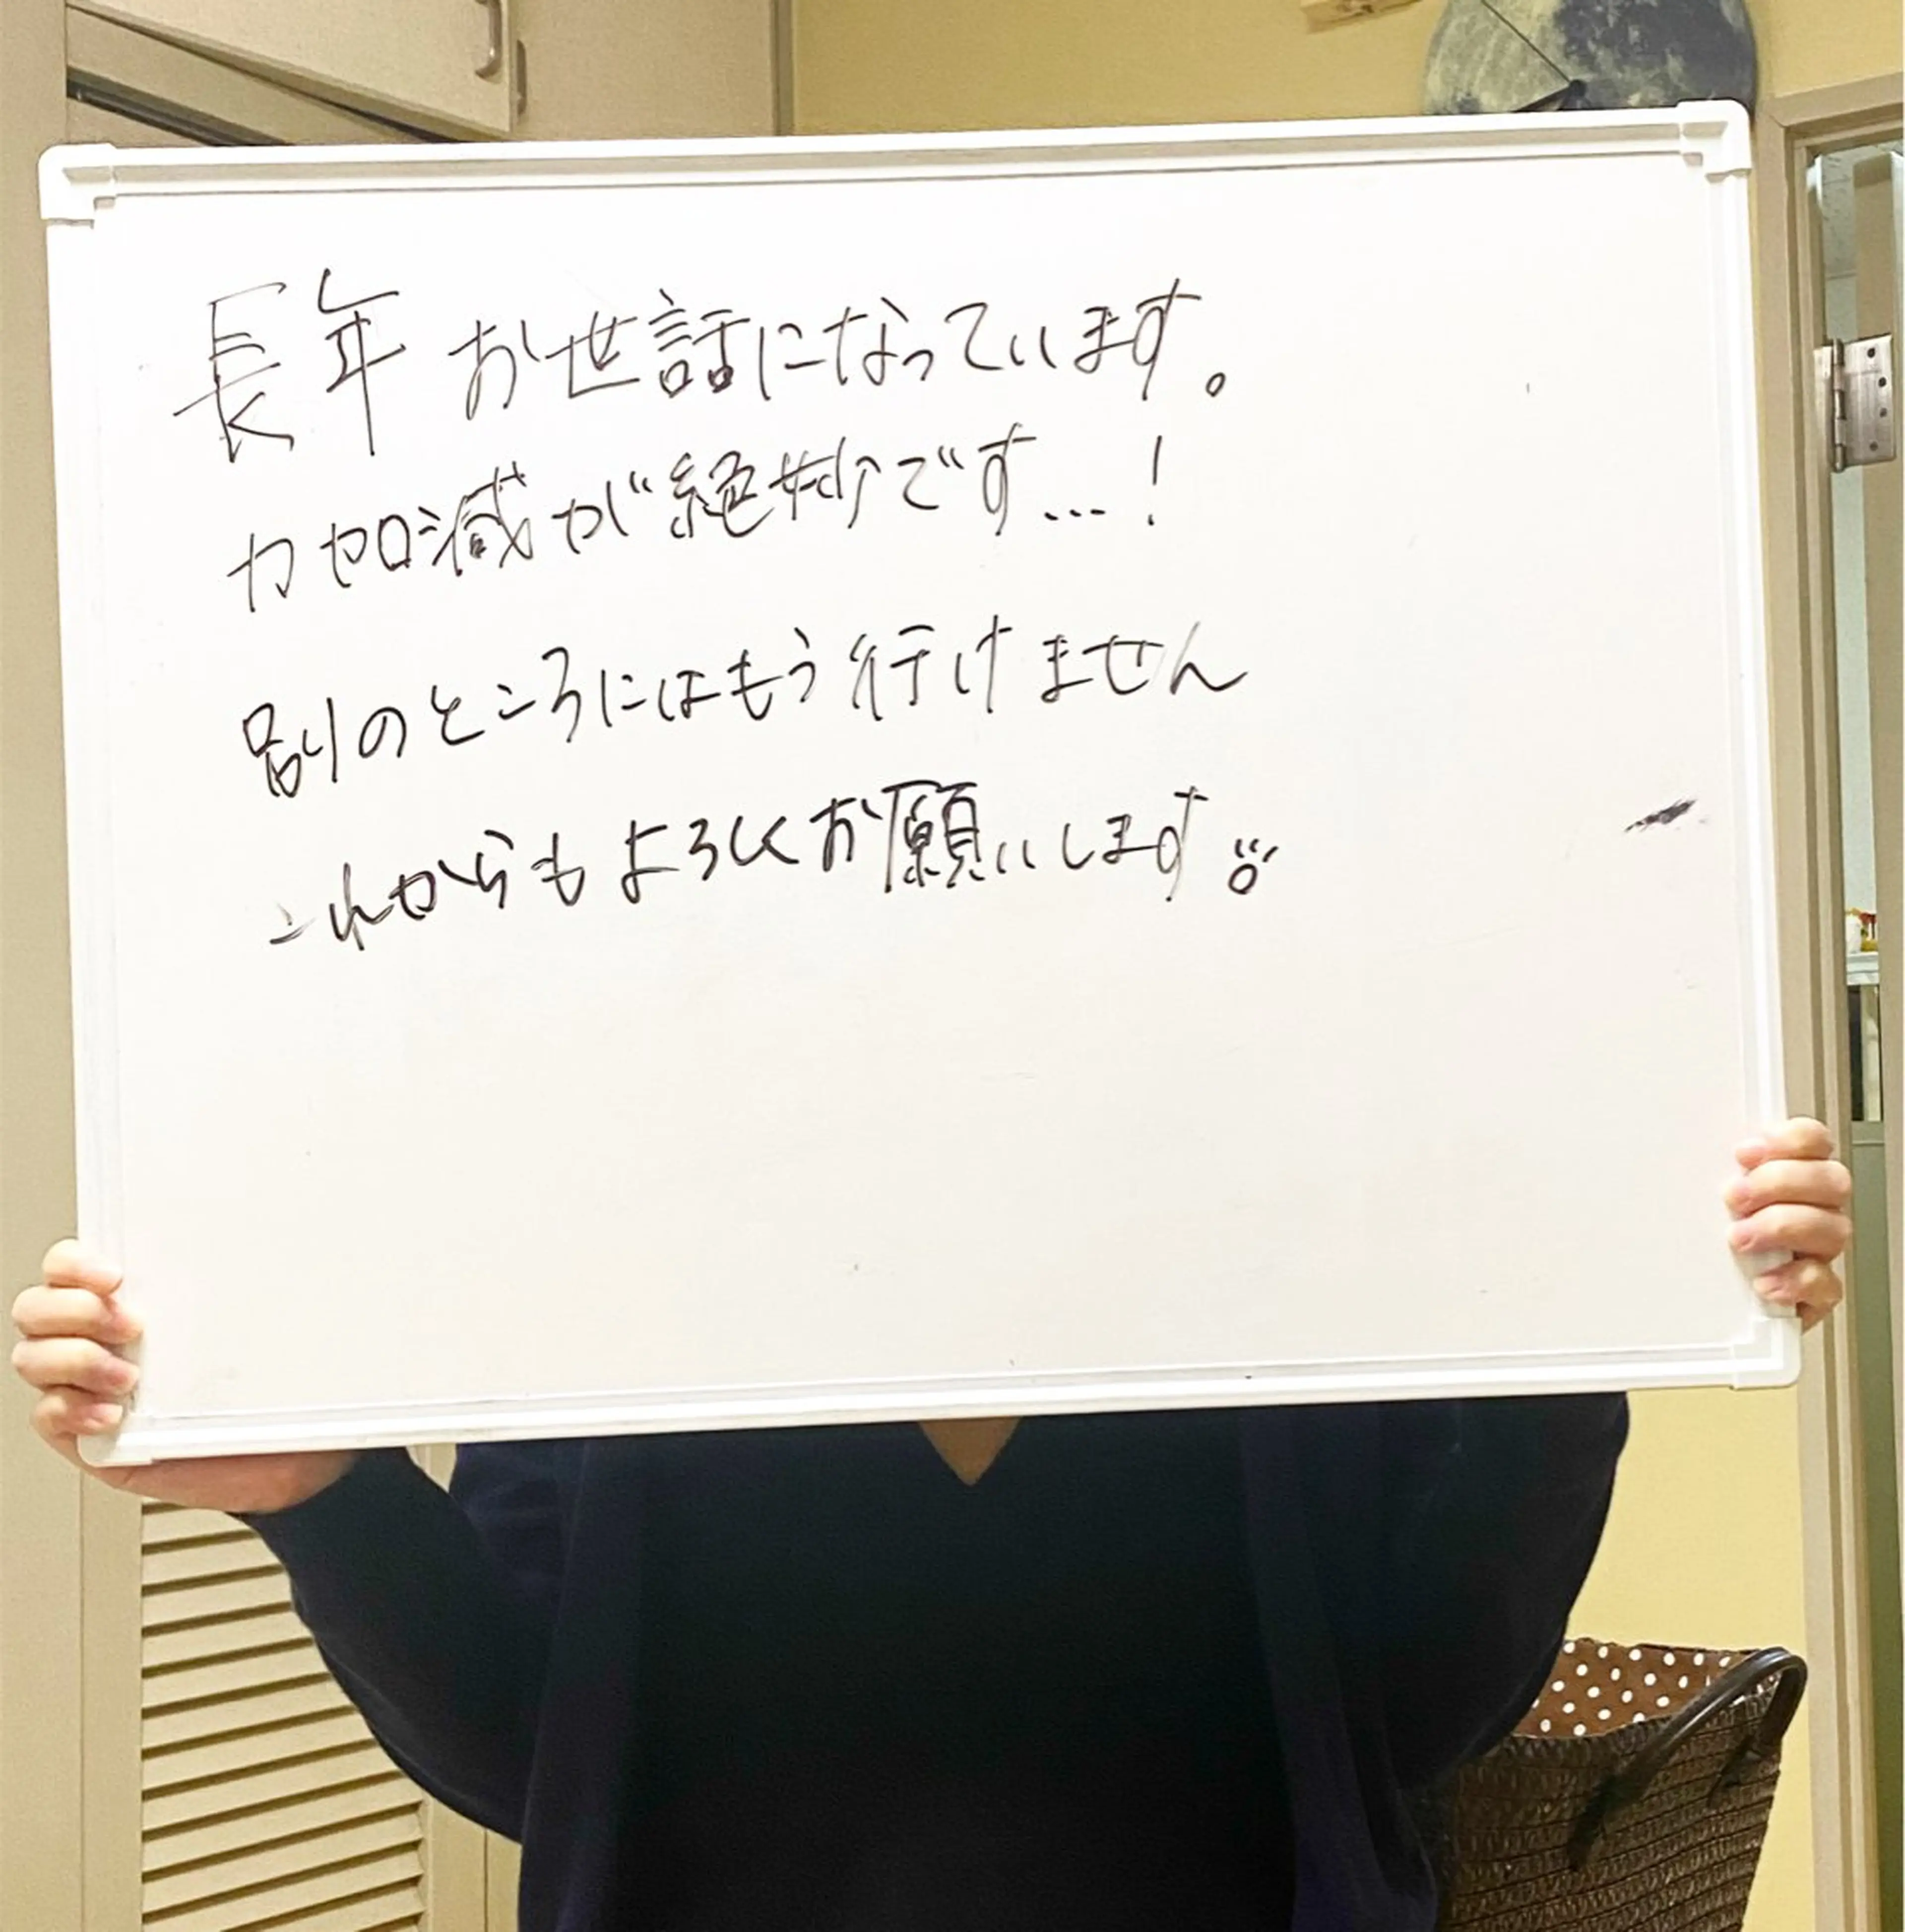 長年お世話になっています。
力加減が絶妙です…!
別のところにはもう行けません
これからもよろしくお願いします